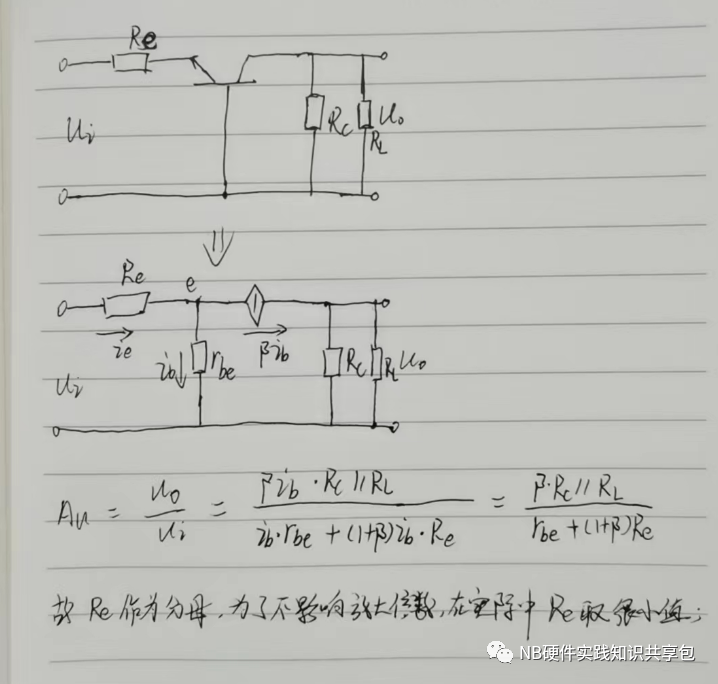 Re
Ui
Rc
RL
Uo
⇓
Re
e
ie
ib
rbe
βib
Rc
RL
Uo
Ui
Au = uo/ui = βib·Rc//RL / ib·rbe+(1+β)ib·Re = β·Rc//RL / rbe+(1+β)Re
故Re作为分母,为了不影响放大倍数,在实际中Re取很小值;
NB硬件实践知识共享包